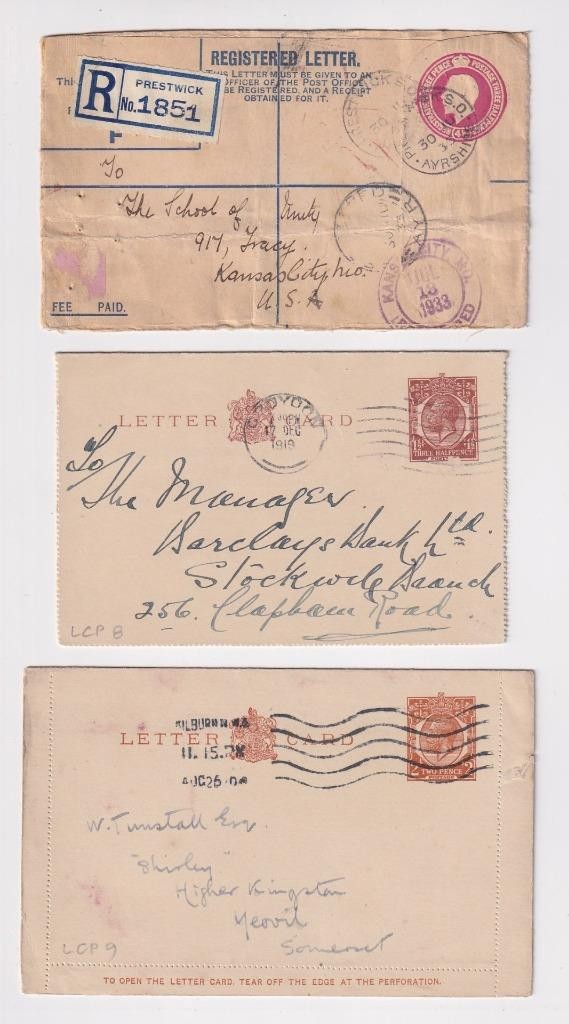 REGISTERED LETTER.
THIS LETTER MUST BE GIVEN TO AN
OFFICER OF THE POST OFFICE
BE REGISTERED, AND A RECEIPT
OBTAINED FOR IT.
R PRESTWICK
No. 1851
To
The School of Unity
917, Tracy.
Kansas City, Mo.
U.S.A
30
AYRSHIRE
AYR
KANSAS CITY, MO.
JUL
13
1933
FEE PAID.
LETTER CARD
CROYDON
17 DEC
1919
THREE HALFPENCE
To
The Manager
Barclays Bank Ltd.
Stockwell Branch
256. Clapham Road.
LCP 8
LETTER CARD
KILBURN
11. 15. PM
AUG 26
2 TWO PENCE 2
POSTAGE
W. Tunstall Esq.
"Shirley"
Higher Kingston
Yeovil
Somerset
LCP 9
TO OPEN THE LETTER CARD, TEAR OFF THE EDGE AT THE PERFORATION.